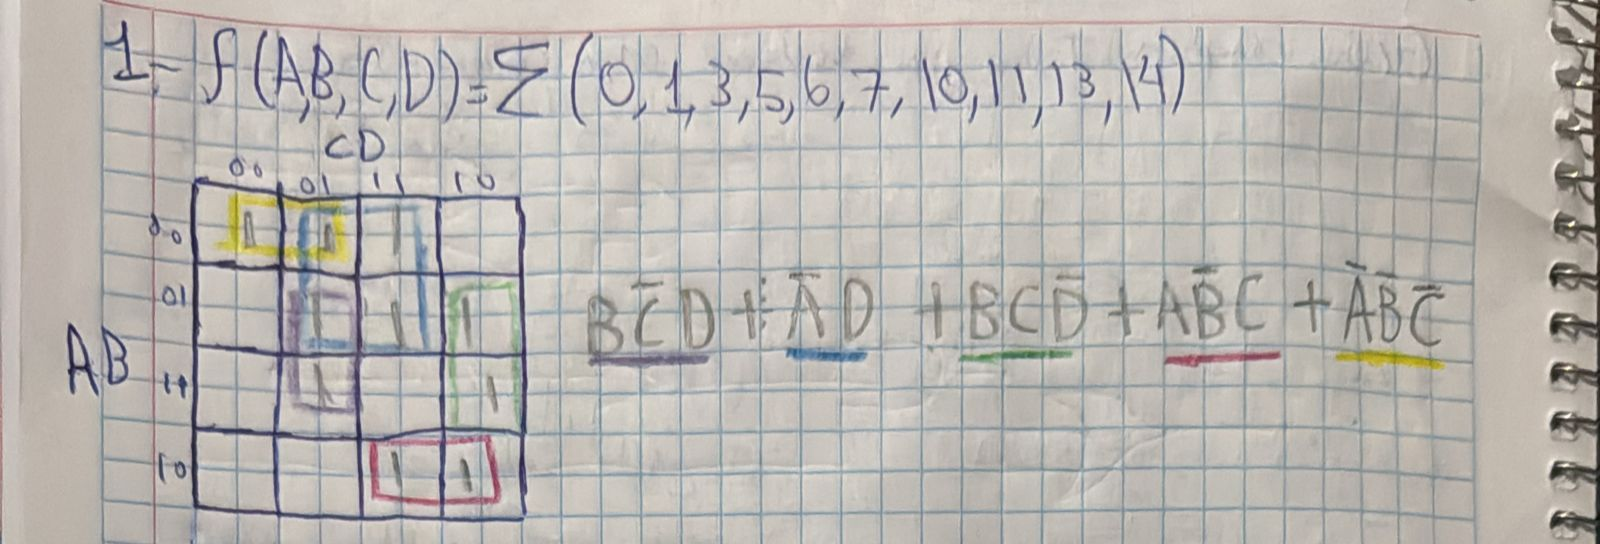 1- f(A,B,C,D)=∑(0,1,3,5,6,7,10,11,13,14)
CD
00 01 11 10
00 1 1 1
01 1 1 1
AB 11 1 1
10 1 1
BC̅D + A̅D + BCD̅ + AB̅C + A̅B̅C̅